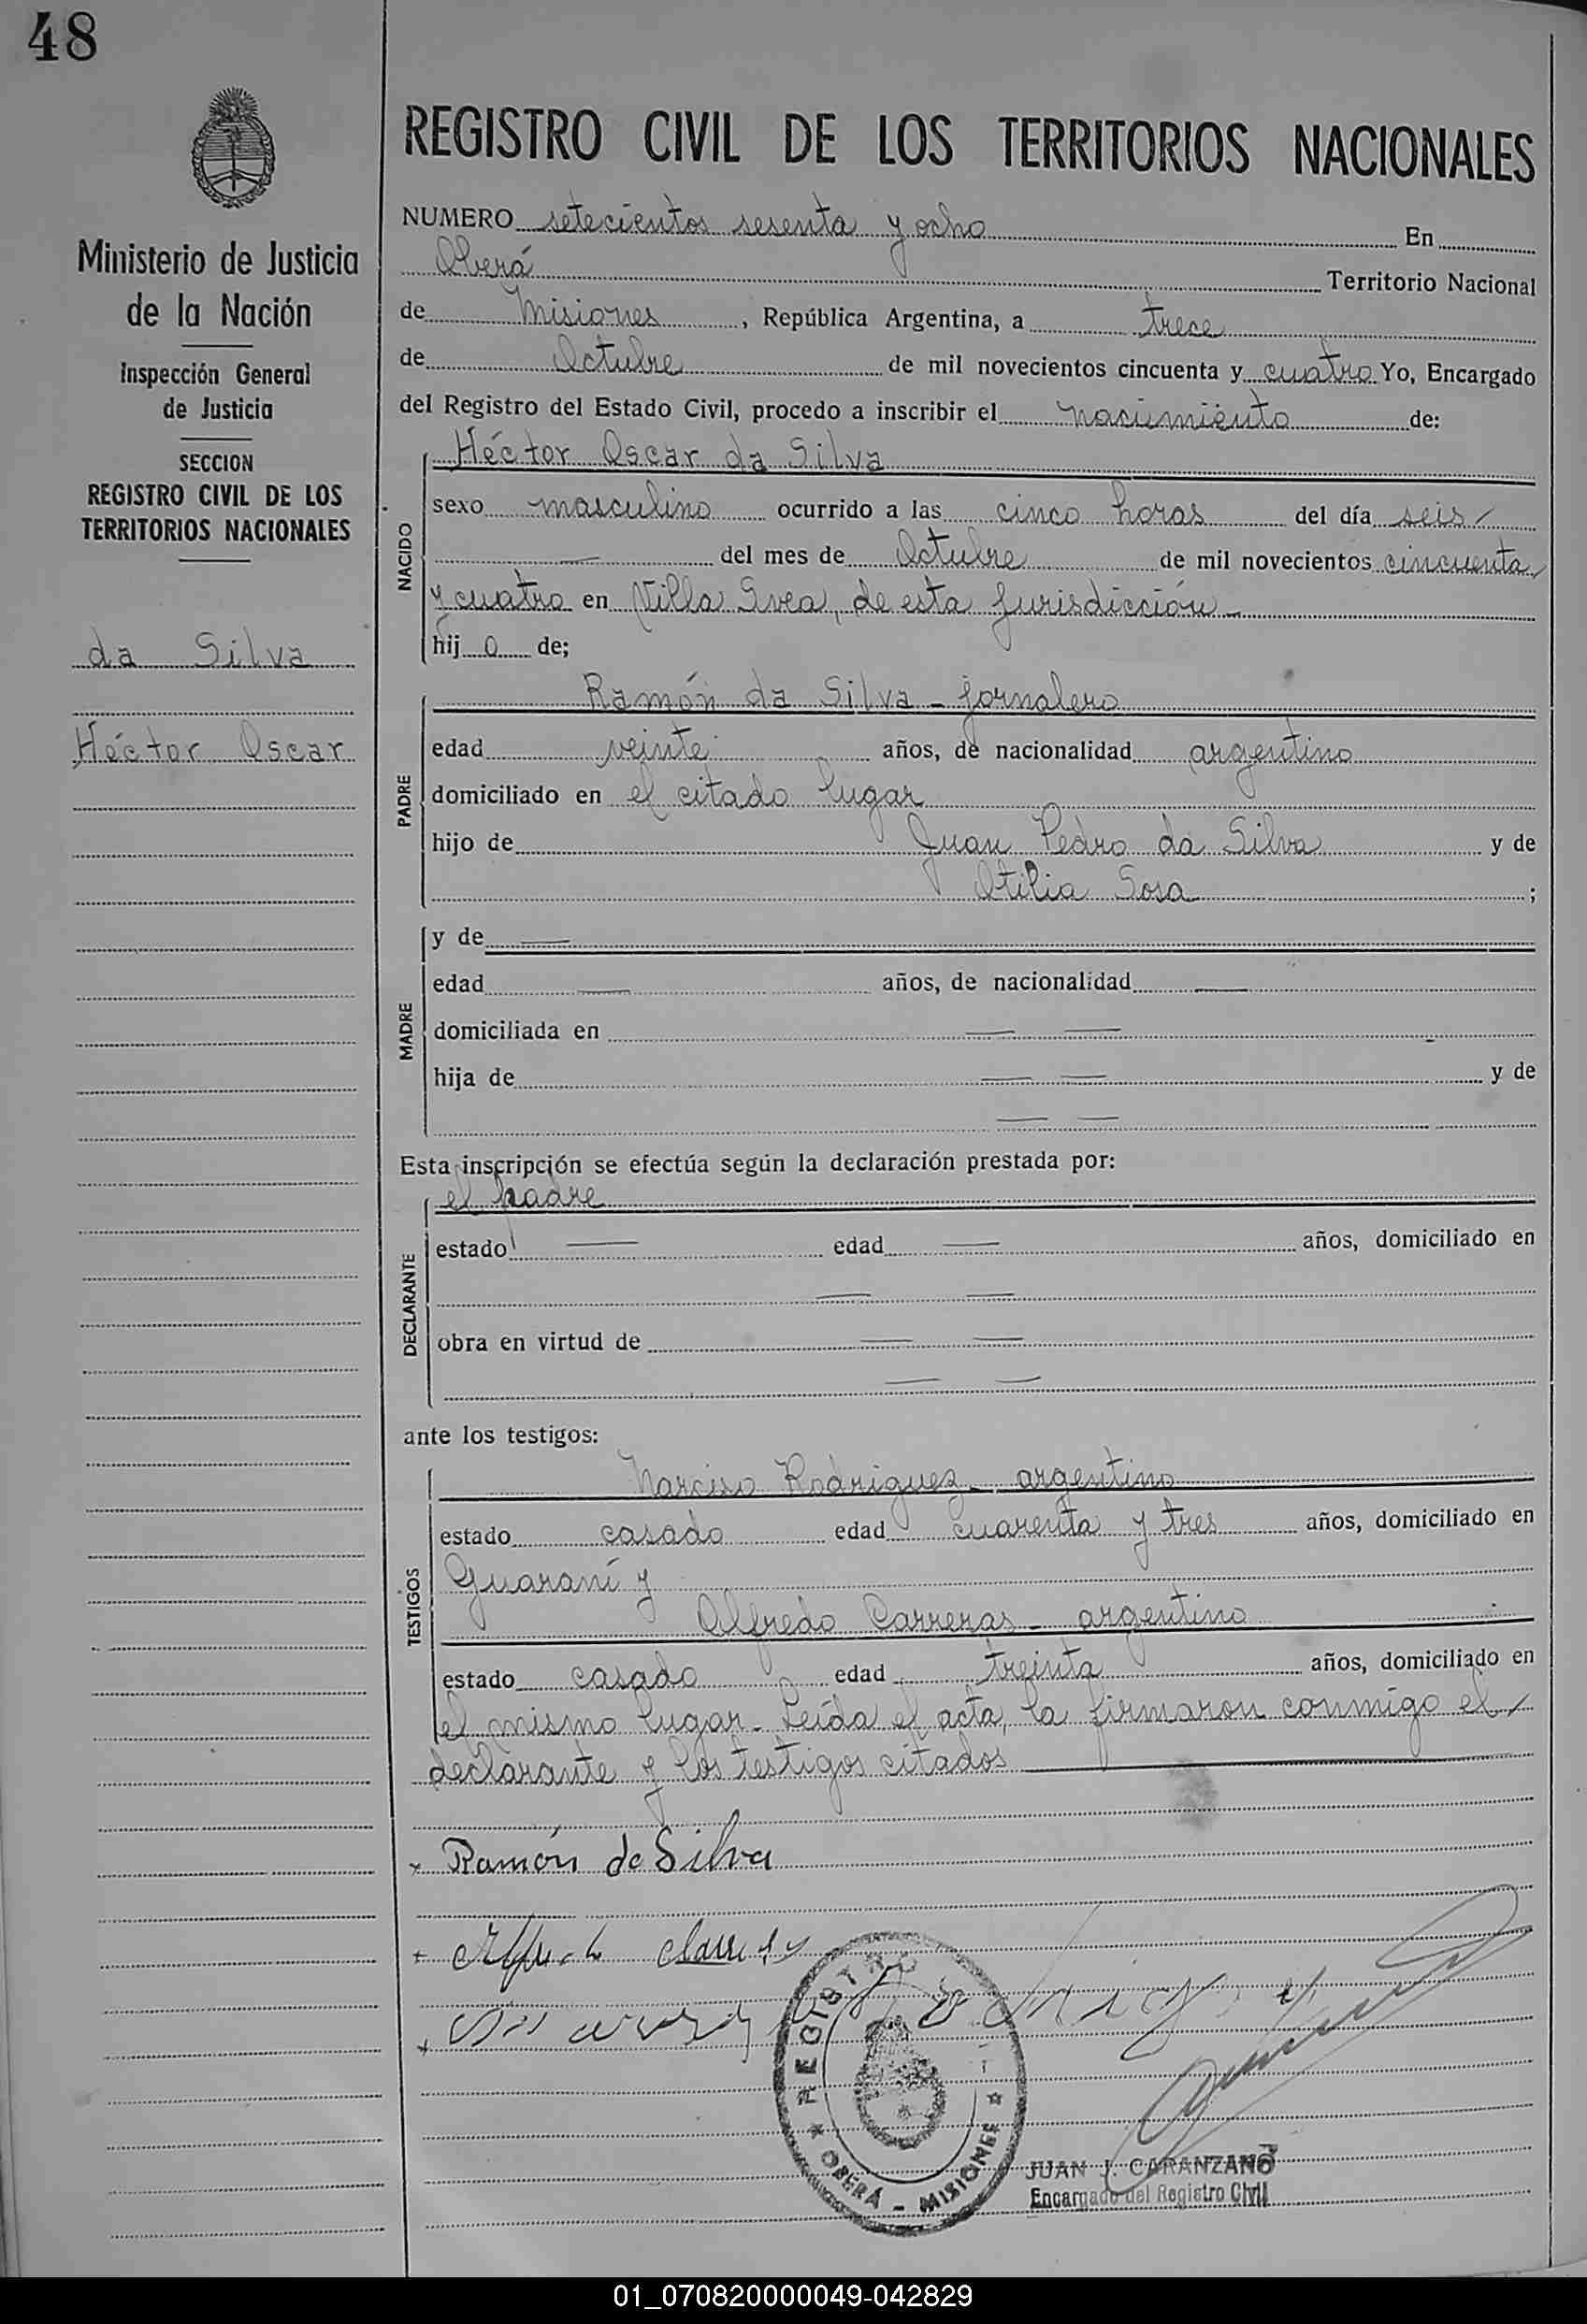 48
REGISTRO CIVIL DE LOS TERRITORIOS NACIONALES
Ministerio de Justicia
de la Nación
Inspección General
de Justicia
SECCION
REGISTRO CIVIL DE LOS
TERRITORIOS NACIONALES
da Silva
Héctor Oscar
NUMERO setecientos sesenta y ocho En
Oberá Territorio Nacional
de Misiones, República Argentina, a trece
de Octubre de mil novecientos cincuenta y cuatro Yo, Encargado
del Registro del Estado Civil, procedo a inscribir el nacimiento de:
Héctor Oscar da Silva
NACIDO
sexo masculino ocurrido a las cinco horas del día seis
del mes de Octubre de mil novecientos cincuenta
y cuatro en Villa Svea, de esta jurisdicción
hijo de;
Ramón da Silva - jornalero
PADRE
edad veinte años, de nacionalidad argentino
domiciliado en el citado lugar
hijo de Juan Pedro da Silva y de
Otilia Sosa ;
MADRE
y de
edad años, de nacionalidad
domiciliada en
hija de y de
Esta inscripción se efectúa según la declaración prestada por:
el padre
DECLARANTE
estado edad años, domiciliado en
obra en virtud de
ante los testigos:
TESTIGOS
Narciso Rodriguez - argentino
estado casado edad cuarenta y tres años, domiciliado en
Guaraní y
Alfredo Carreras - argentino
estado casado edad treinta años, domiciliado en
el mismo lugar - Leída el acta, la firmaron conmigo el
declarante y los testigos citados
Ramón da Silva
REGISTRO
OBERÁ - MISIONES
JUAN J. CARANZANO
Encargado del Registro Civil
01_070820000049-042829